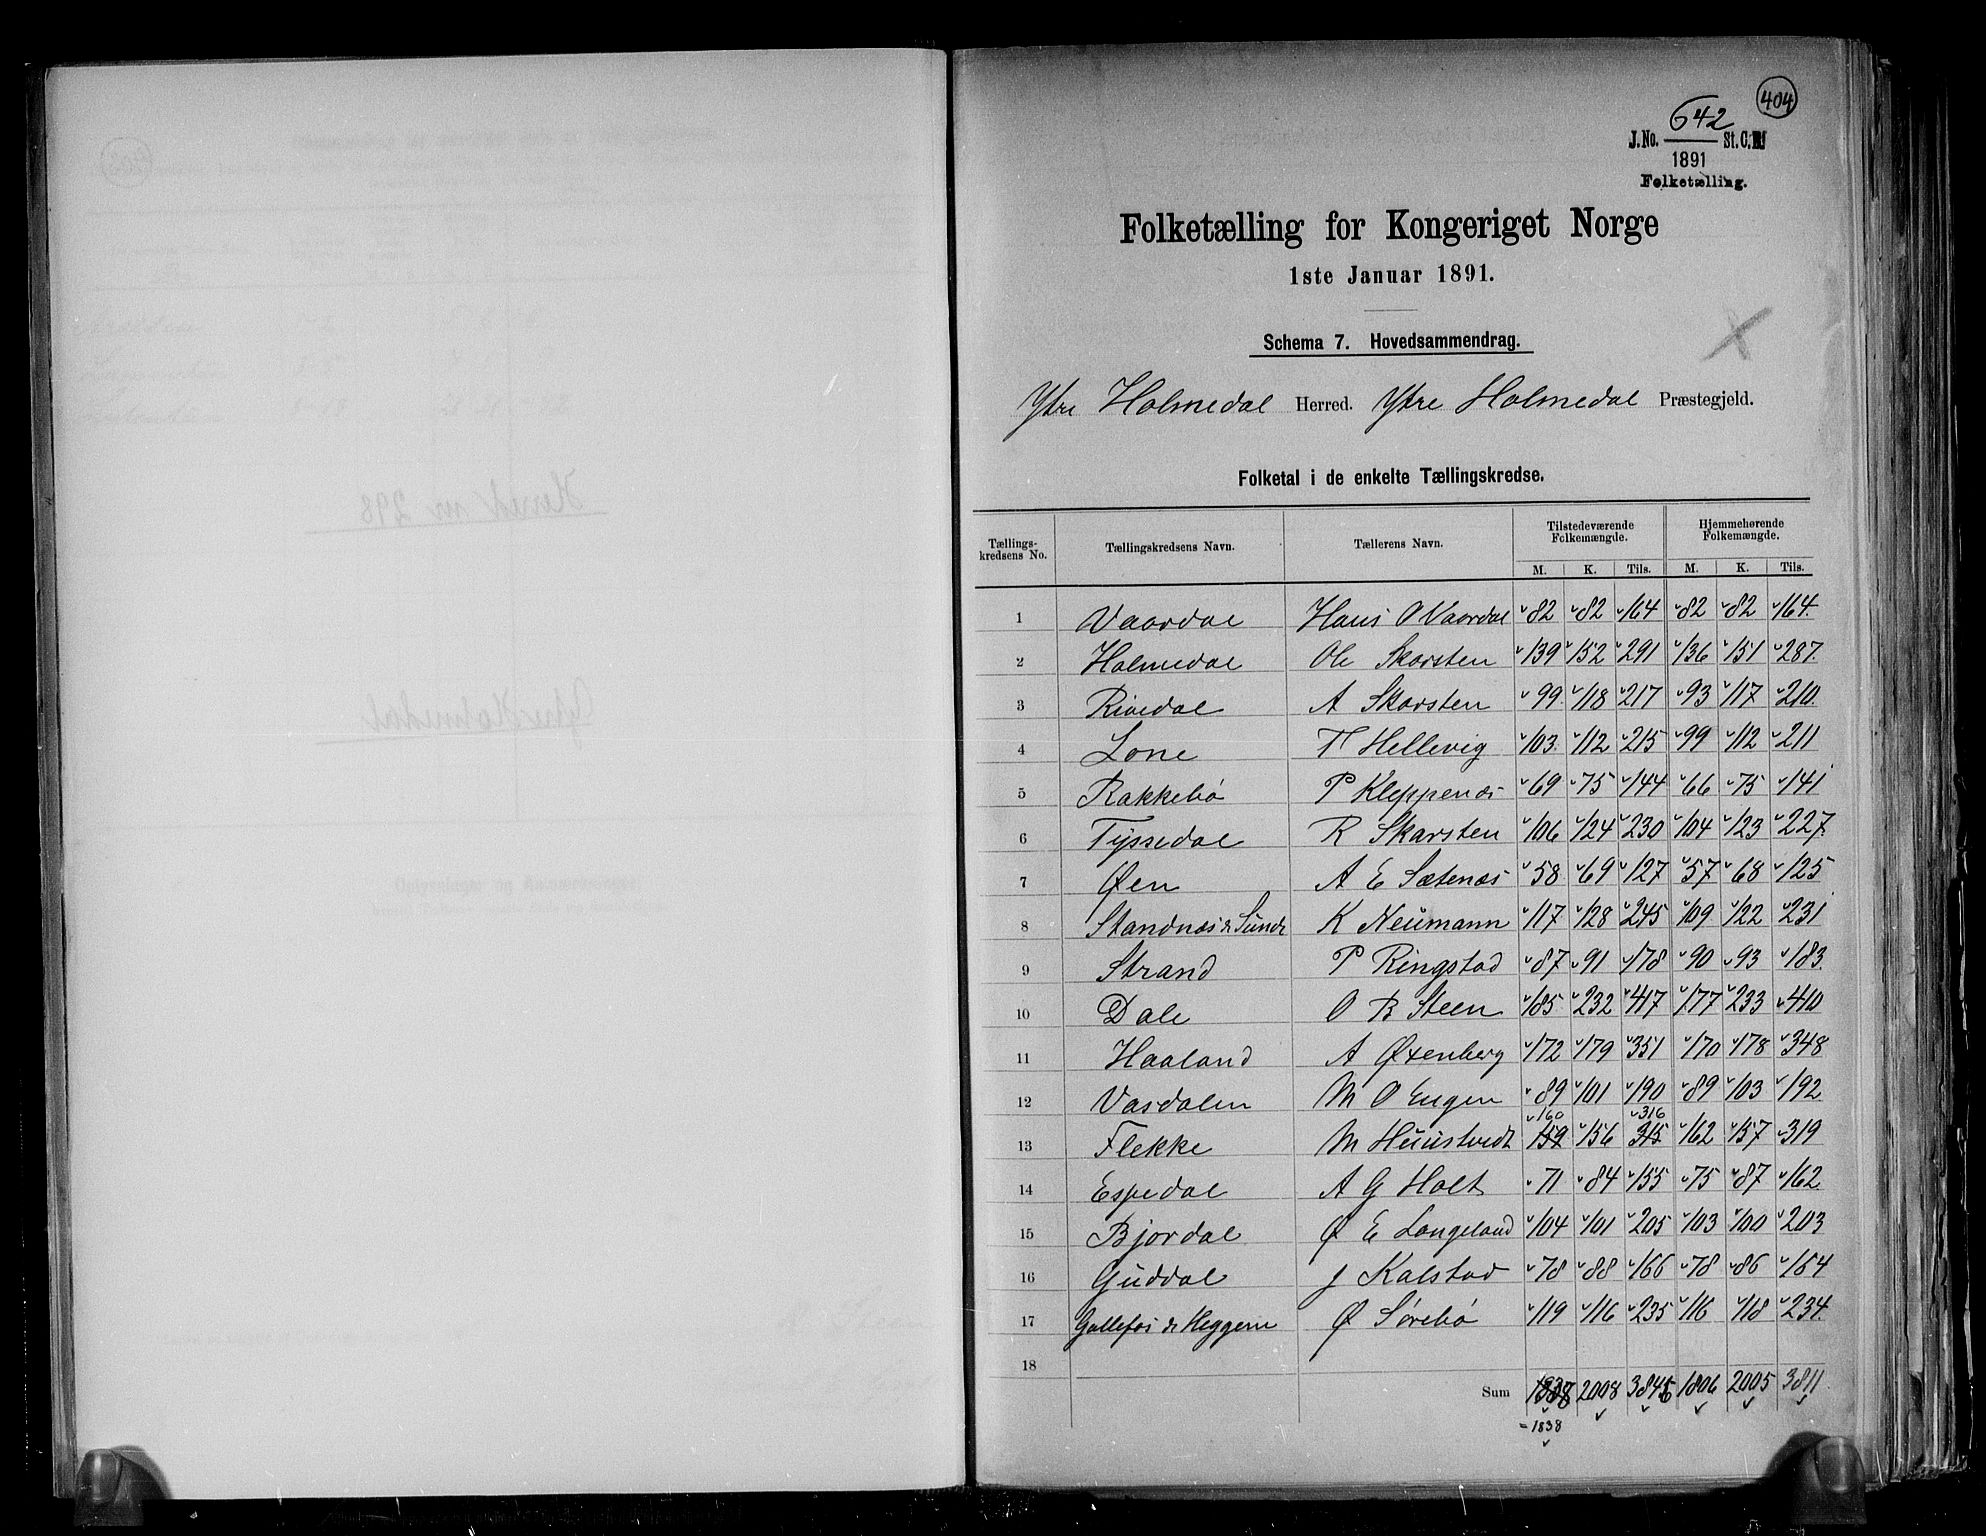 404
642
J.No. St. C.B.
1891
Folketælling.
Folketælling for Kongeriget Norge
1ste Januar 1891.
Schema 7. Hovedsammendrag.
Ytre Holmedal Herred. Ytre Holmedal Præstegjeld.
Folketal i de enkelte Tællingskredse.
Tællings-kredsens No. Tællingskredsens Navn. Tællerens Navn. Tilstedeværende Folkemængde. Hjemmehørende Folkemængde.
M. K. Tils. M. K. Tils.
1 Vaardal Hans O Vaardal 82 82 164 82 82 164.
2 Holmedal Ole Skarsten 139 152 291 136 151 287.
3 Rivedal A Skarsten 99 118 217 93 117 210.
4 Lone T Hellevig 103 112 215 99 112 211
5 Rakkebø P Kleppenæs 69 75 144 66 75 141
6 Tyssedal R Skarsten 106 124 230 104 123 227
7 Øen A E Sætenæs 58 69 127 57 68 125
8 Standnæs & Sunde K Neumann 117 128 245 109 122 231
9 Strand P Ringstad 87 91 178 90 93 183.
10 Dale O B Steen 185 232 417 177 233 410
11 Haaland A Øxenberg 172 179 351 170 178 348
12 Vasdalen M O Engen 89 101 190 89 103 192
160 316
13 Flekke M Huustvedt 159 156 315 162 157 319
14 Espedal A G Holt 71 84 155 75 87 162
15 Bjordal Ø E Langeland 104 101 205 103 100 203
16 Guddal J Kalstad 78 88 166 78 86 164
17 Gallefos & Heggem Ø Sørebø 119 116 235 116 118 234.
18
Sum 2008 3846 1806 2005 3811
= 1838
Herred nr 298
Ytre Holmedal